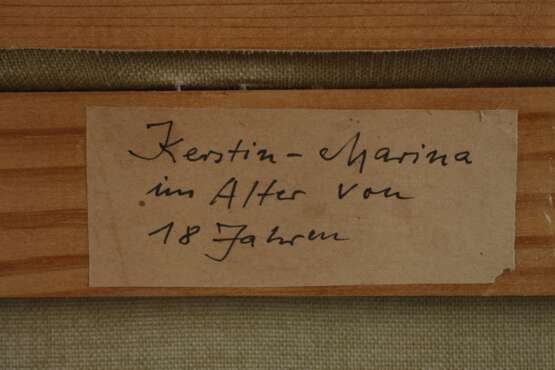 Kerstin-Marina
im Alter von
18 Jahren